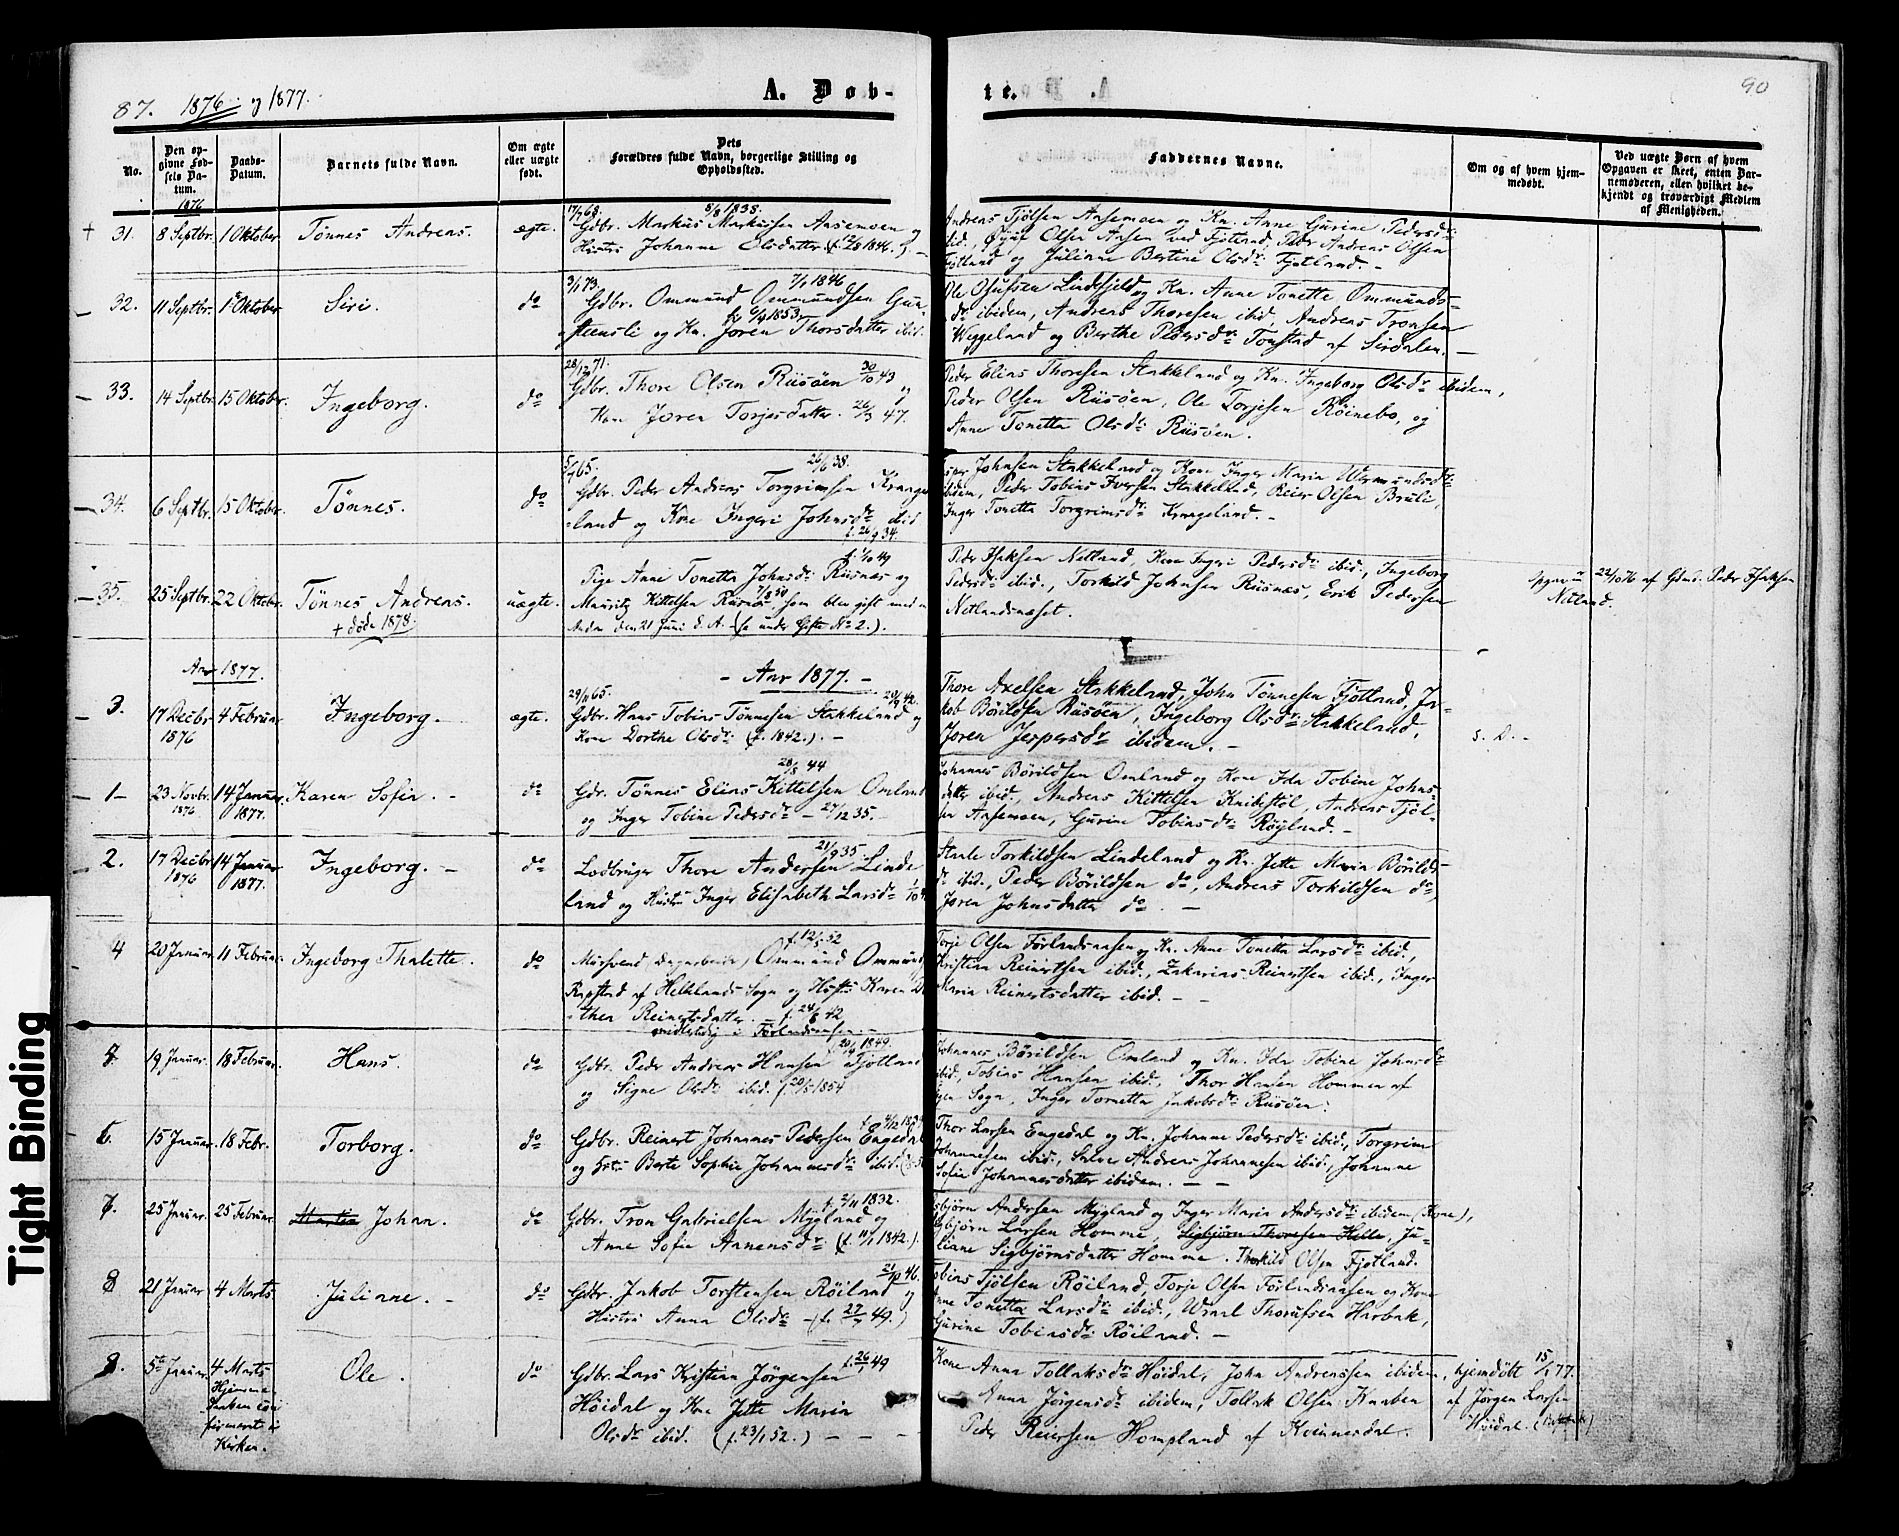 87. 1876 og 1877.
A. Døb-
te.
90
No.
Den op-
givne Fød-
sels Da-
tum.
Daabs-
Datum.
Barnets fulde Navn.
Om ægte
eller uægte
født.
Dets
Forældres fulde Navn, borgerlige Stilling og
Opholdssted.
Faddernes Navne.
Om og af hvem hjem-
medøbt.
Ved uægte Børn af hvem
Opgaven er skeet, enten Bar-
nemoderen, eller hvilket be-
kjendt og troværdigt Medlem
af Menigheden.
1876
31. 8 Septbr. 1 Oktober. Tønnes Andreas. ægte.
Gdbr. Markus Markusen Aasemoen og
Hustru Johanne Olsdatter
Andreas Fjølsen Aasemoen og Kn. Anne Gurine Pedersdr.
ibid., Olsen Aasen ved Fjotland, Peder Andreas Olsen
Fjotland og Juliane Bertine Olsdr. Fjotland. -
32. 11 Septbr. 1 Oktober Siri. do
3/1 73. 7/1 1846
Gdbr. Ommund Ommundsen Gun-
stveitsli og Kn. Joren Thorsdatter ibid.
Ole Lindefjeld og Kn. Anne Tonette Ommunds-
dr. ibidem, Andreas Thoresen ibid. Andreas Tronsen
Weggeland og Berthe Pedersdr. Tonstad af Sirdalen. -
33. 14 Septbr. 15 Oktobr. Ingeborg. do
28/12 71.
Gdbr. Thore Olsen Riisøen 30/10 43 og
Kone Joren Torjesdatter. 26/3 47.
Peder Elias Thoresen Stakkeland og Kn. Ingeborg Olsdr. ibidem,
Peder Olsen Riisøen, Ole Torjesen Røinebø, og
Anne Tonetta Olsdr. Riisøen.
34. 6 Septbr. 15 Oktober Tønnes. do
26/6 38.
Gdbr. Peder Andreas Torgrimsen Krage-
land og Kone Ingeri Johnsdr. ibid
f. 26/9 34.
Johnsen Stakkeland og Kone Inger Maria Wermundsdr.
ibidem, Peder Tobias Iversen Stakkeland, Reier Olsen Bruli,
Inger Tonetta Torgrimsdr. Krageland. -
35. 25 Septbr. 22 Oktbr. Tønnes Andreas. uægte.
+ døde 1878.
Pige Anne Tonetta Johnsdr. Riisnæs og
Mauritz Kittelsen Riisnæs, som blev gift med
Anden den 21 Juni d. A. (se under Gifte No 2.).
Peder Isaksen Netland, Kone Ingeri Pedersdr. ibid., Ingeborg
Pedersdr. ibid., Torkild Johnsen Riisnæs, Erik Pedersen
Netlandsnæset.
22/10 76 af Gdmd. Peder Isaksen
Netland.
Aar 1877.
- Aar 1877. -
3. 17 Decbr 1876 4 Februar Ingeborg. - ægte.
29/11 65.
Gdbr. Hans Tobias Tønnesen Stakkeland og
Kone Dorthe Olsdr. (f. 1842.). -
Thore Axelsen Stakkeland, John Tønnesen Fjotland, Ja-
kob Børildsen Riisøen, Ingeborg Olsdr. Stakkeland,
Joren Jespersdr. ibidem. -
s. D. -
1 23 Novbr. 1876 14 Januar 1877. Karen Sofie. - do
28/8 44
Gdr. Tønnes Elias Kittelsen Omland
og Inger Tobine Pedersdr. - 27/12 35. -
Johannes Børildsen Omland og Kone Ida Tobine Johns-
datter ibid., Andreas Kittelsen Knibestøl, Andreas Fjøl-
sen Aasemoen, Gurine Tobiasdr. Røyland. -
2. 17 Decbr 1876 14 Januar 1877. Ingeborg. - do
21/9 35.
Lodbruger Thore Andersen Linde-
land og Hustru Inger Elisabeth Larsdr.
Staale Torkildsen Lindeland og Kn. Jette Maria Børilds-
dr. ibid., Peder Børildsen do, Andreas Torkildsen do,
Joren Johnsdatter do. -
4 20 Januar 11 Februar. Ingeborg Thalette. do
f. 12/5 52
Ommund Ommunds.
Rafstad af Helleland Sogn og Hustru Karen Do-
rthea Reinertsdatter. - f. 24/8 42
midlertidig i Førlandsaasen. -
Torje Olsen Førlandsaasen og Kn. Anne Tonetta Larsdr. ibid.,
Kristian Reinertsen ibid., Zakarias Reinertsen ibid., Inger
Maria Reinertsdatter ibid. - -
19 Januar. 18 Februar. Hans. do
Gdbr. Peder Andreas Hansen Fjotland
og Signe Olsdr. ibid. f. 20/5 1854
Johannes Børildsen Omland og Kn. Ida Tobine Johnsdr.
ibid., Tobias Hansen ibid., Thor Hansen Hommen af
Sogn, Inger Tonetta Jakobsdr. Riisøen.
6. 15 Januar. 18 Febr. Torborg. do
Gdbr. Reinert Johannes Pedersen Engedal
og Berte Sophie Johannesdr. ibid.
Thor Larsen Engedal og Kn. Johanne Pedersdr. ibid., Torgrim
Johannesen ibid., Salve Andreas Johannesen ibid., Johanne
Sofie Johannesdatter ibidem. - -
7. 25 Januar. 25 Februar. Johan. do
f. 2/11 1832.
Gdbr. Tron Gabrielsen Mygland og
Anne Sofie Annensdr. (f. 11/1 1842.)
Asbjørn Andersen Mygland og Inger Maria Andersdr. ibidem (Kone),
Sigbjørn Larsen Homme, Sigbjørn Thoresen Helle, Ju-
liane Sigbjørnsdatter Homme. Thorkild Olsen Fjotland.
8 21 Januar 4 Marts Juliane. - do
21/10 46.
Gdbr. Jakob Torstensen Røiland og
Hustru Anna Olsdr. - (f. 27/7 49.)
Tobias Fjølsen Røiland, Torje Olsen Førlandsaasen og Kone
Anne Tonetta Larsdr. ibid., Thorufsen Harbak,
Gurine Tobiasdr. Røiland. -
9. 5te Januar. 4 Marts Ole. do
Hjemme-
daaben con-
firmeret i
Kirken.
f. 26/1 49
Gdbr. Lars Kristian Jørgensen
Høidal og Kone Jette Maria
Olsdr. ibid. (f. 23/1 52.) - - -
Kone Anna Tollaksdr. Høidal, John Andreassen ibidem,
Anna Jørgensdr. ibidem, Tollak Olsen Knaben
Peder Reiersen Hompland af Kvinnesdal.
hjemdøbt 15/1 77.
af Jørgen Larsen
Høidal.
Tight Binding